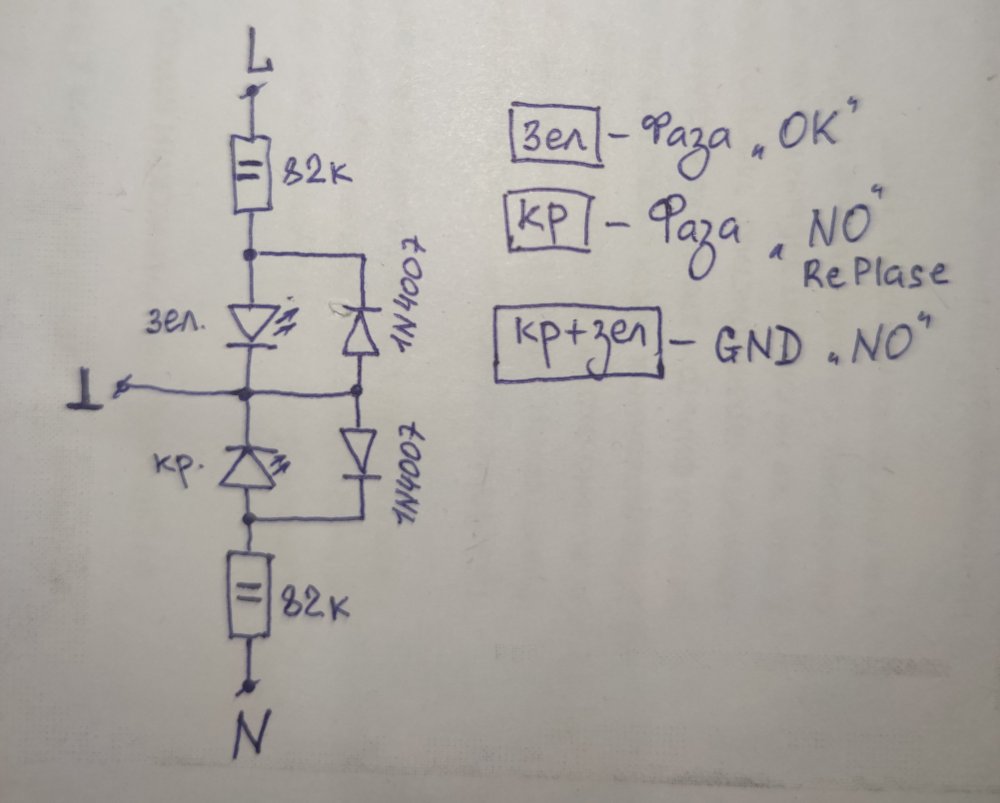 L
82к
зел.
1N4007
кр.
1N4007
82к
N
Зел – Фаза „OK“
КР – Фаза „NO“
RePlase
кр+зел – GND „NO“